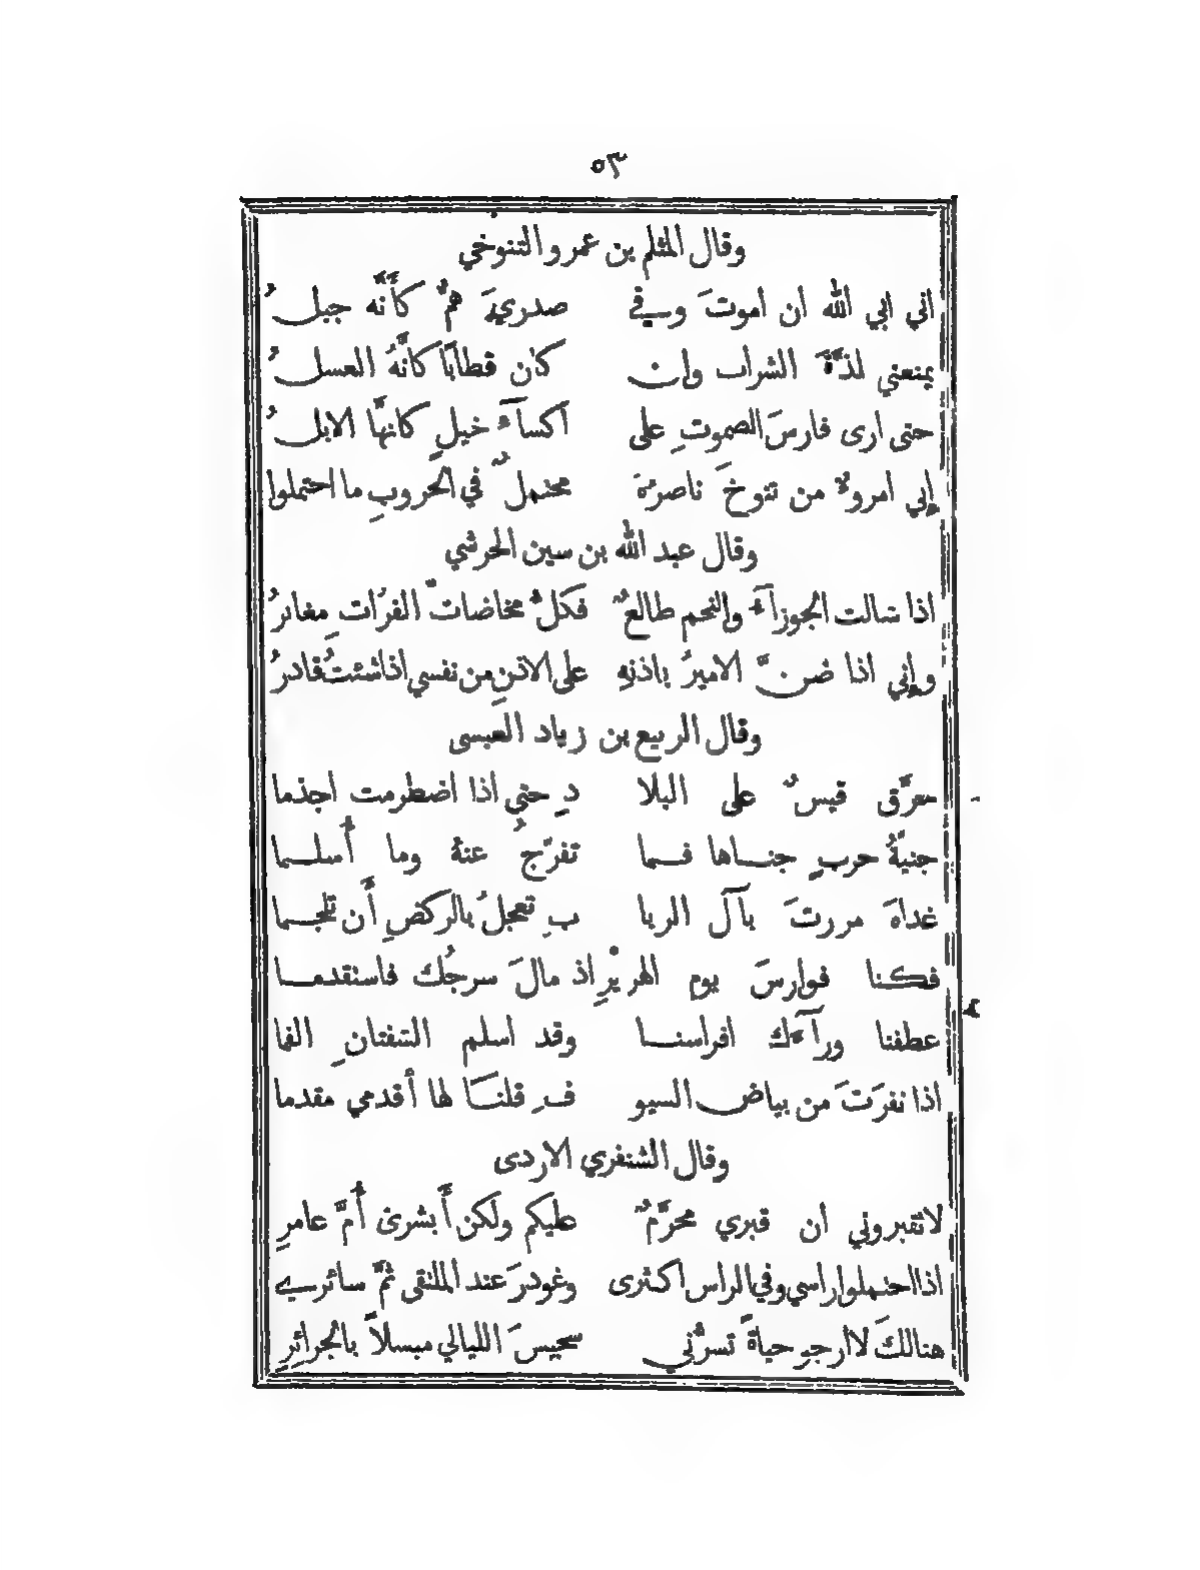 ٥٣
وقال المثلم بن عمرو التنوخي
اني ابي الله ان اموتَ وفي صدريَ همٌّ كأَنَّه جبلُ
يمنعني لذَّةَ الشراب وان كان قطابًا كأَنَّهُ العسلُ
حتى ارى فارسَ الصموتِ على أكسآءِ خيلٍ كانهَّا الابلُ
إني امروءٌ من تنوخَ ناصرهُ محتملٌ في الحروبِ ما احتملوا
وقال عبد الله بن سين الحرشي
اذا شالت الجوزآءُ والنجم طالعٌ فكلُّ مخاضات الفرَات مغابرُ
وإني اذا ضنَّ الاميرُ باذنهِ على الاذنِ من نفسي اذا شئتُ قادرُ
وقال الربيع بن زياد العبسى
حرَّق قيسٌ على البلا دِ حتى اذا اضطرمت اجذما
جنيَّةُ حربٍ جناها فما تفرَّجُ عنهُ وما أُسلما
غداةَ مررتَ بآل الربا بِ تعجلُ بالركضِ أَن تلجما
فكنا فوارسَ يوم الهريْرِ اذ مالَ سرجُك فاستقدما
عطفنا ورآءك افراسنا وقد اسلم الشفتانِ الفما
اذا نفرَتَ من بياض السيو فِ قلنا لها أقدمي مقدما
وقال الشنفري الازدى
لاتقبروني ان قبري محرَّمٌ عليكم ولكن أَبشرى أُمَّ عامرِ
اذا احتملوا راسي وفي الراس اكثرى وغودرَ عند الملتقى ثمَّ سائري
هنالكَ لاارجو حياةً تسرُّني سجيسَ الليالي مبسلاً بالجرائرِ